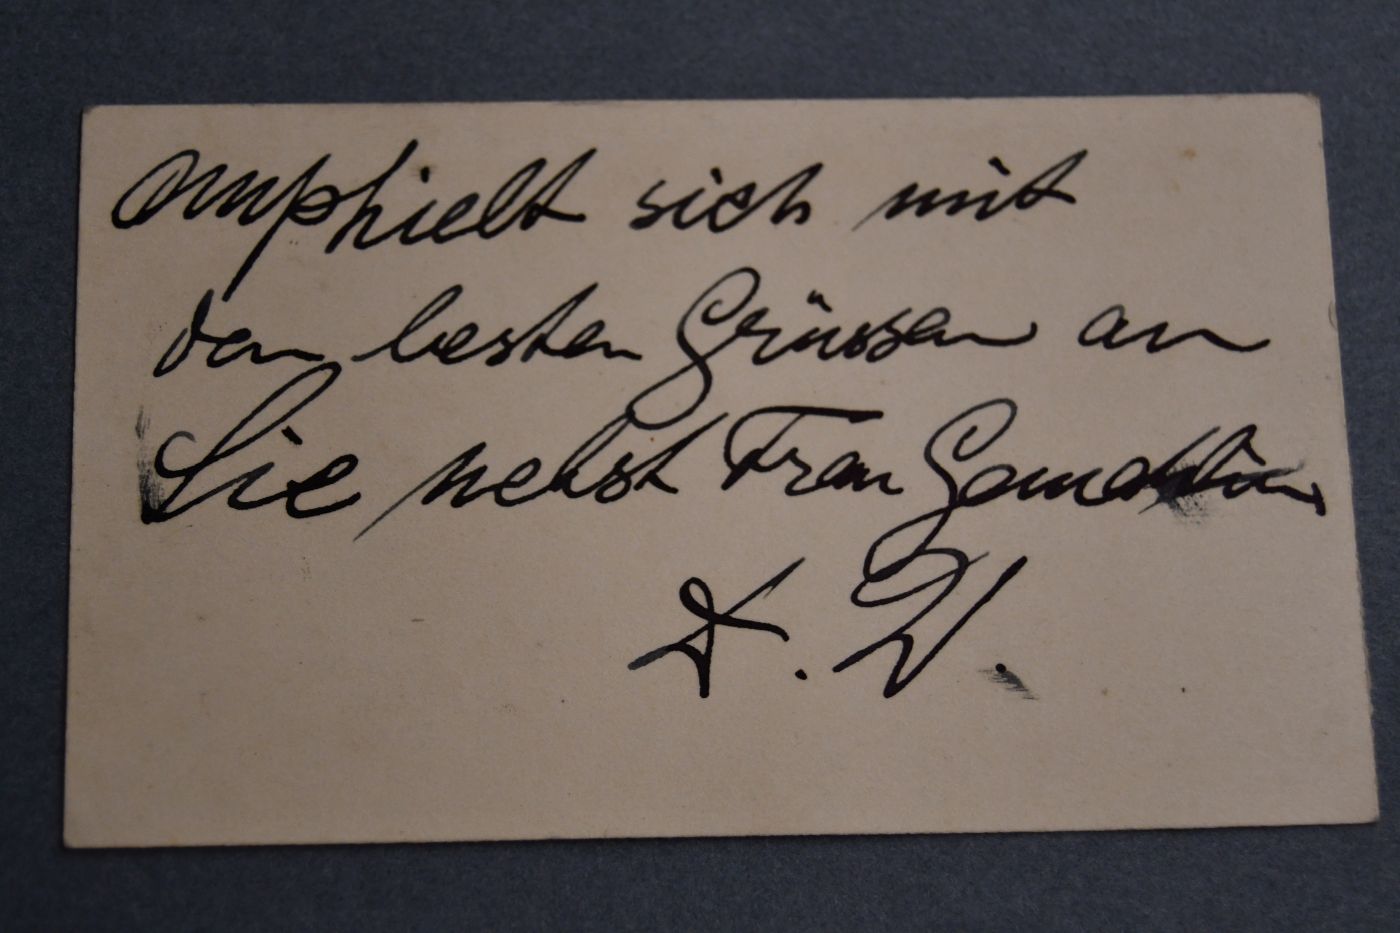 emphielt sich mit
den besten Grüssen an
Sie nebst Frau Gemahlin
D. W.